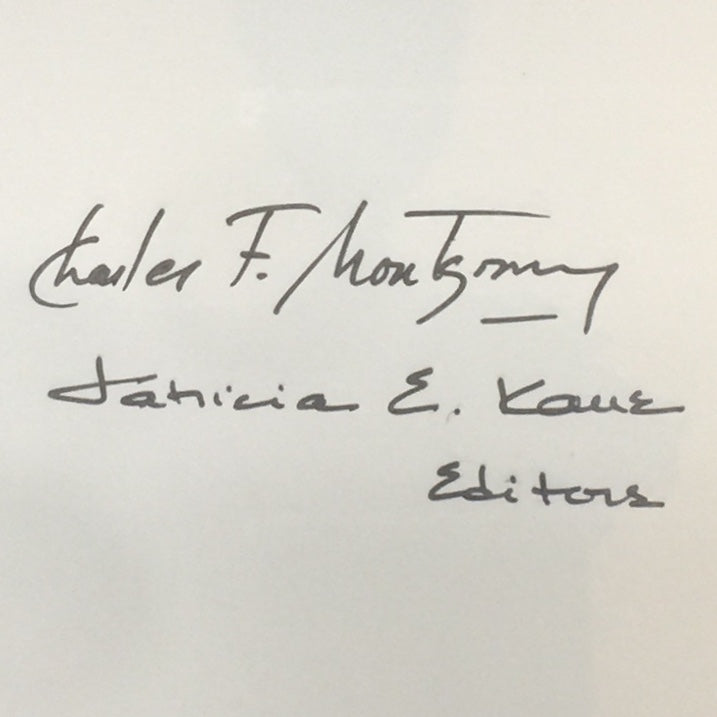 Charles F. Montgomery
Patricia E. Kane
Editors